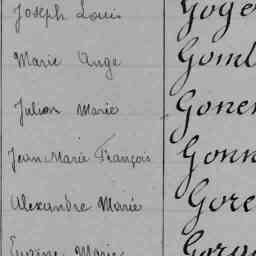 Joseph Louis Goge
Marie Ange Goml
Julien Marie Gonen
Jean Marie François Gonn
Alexandre Marie Gore
Eugène Marie